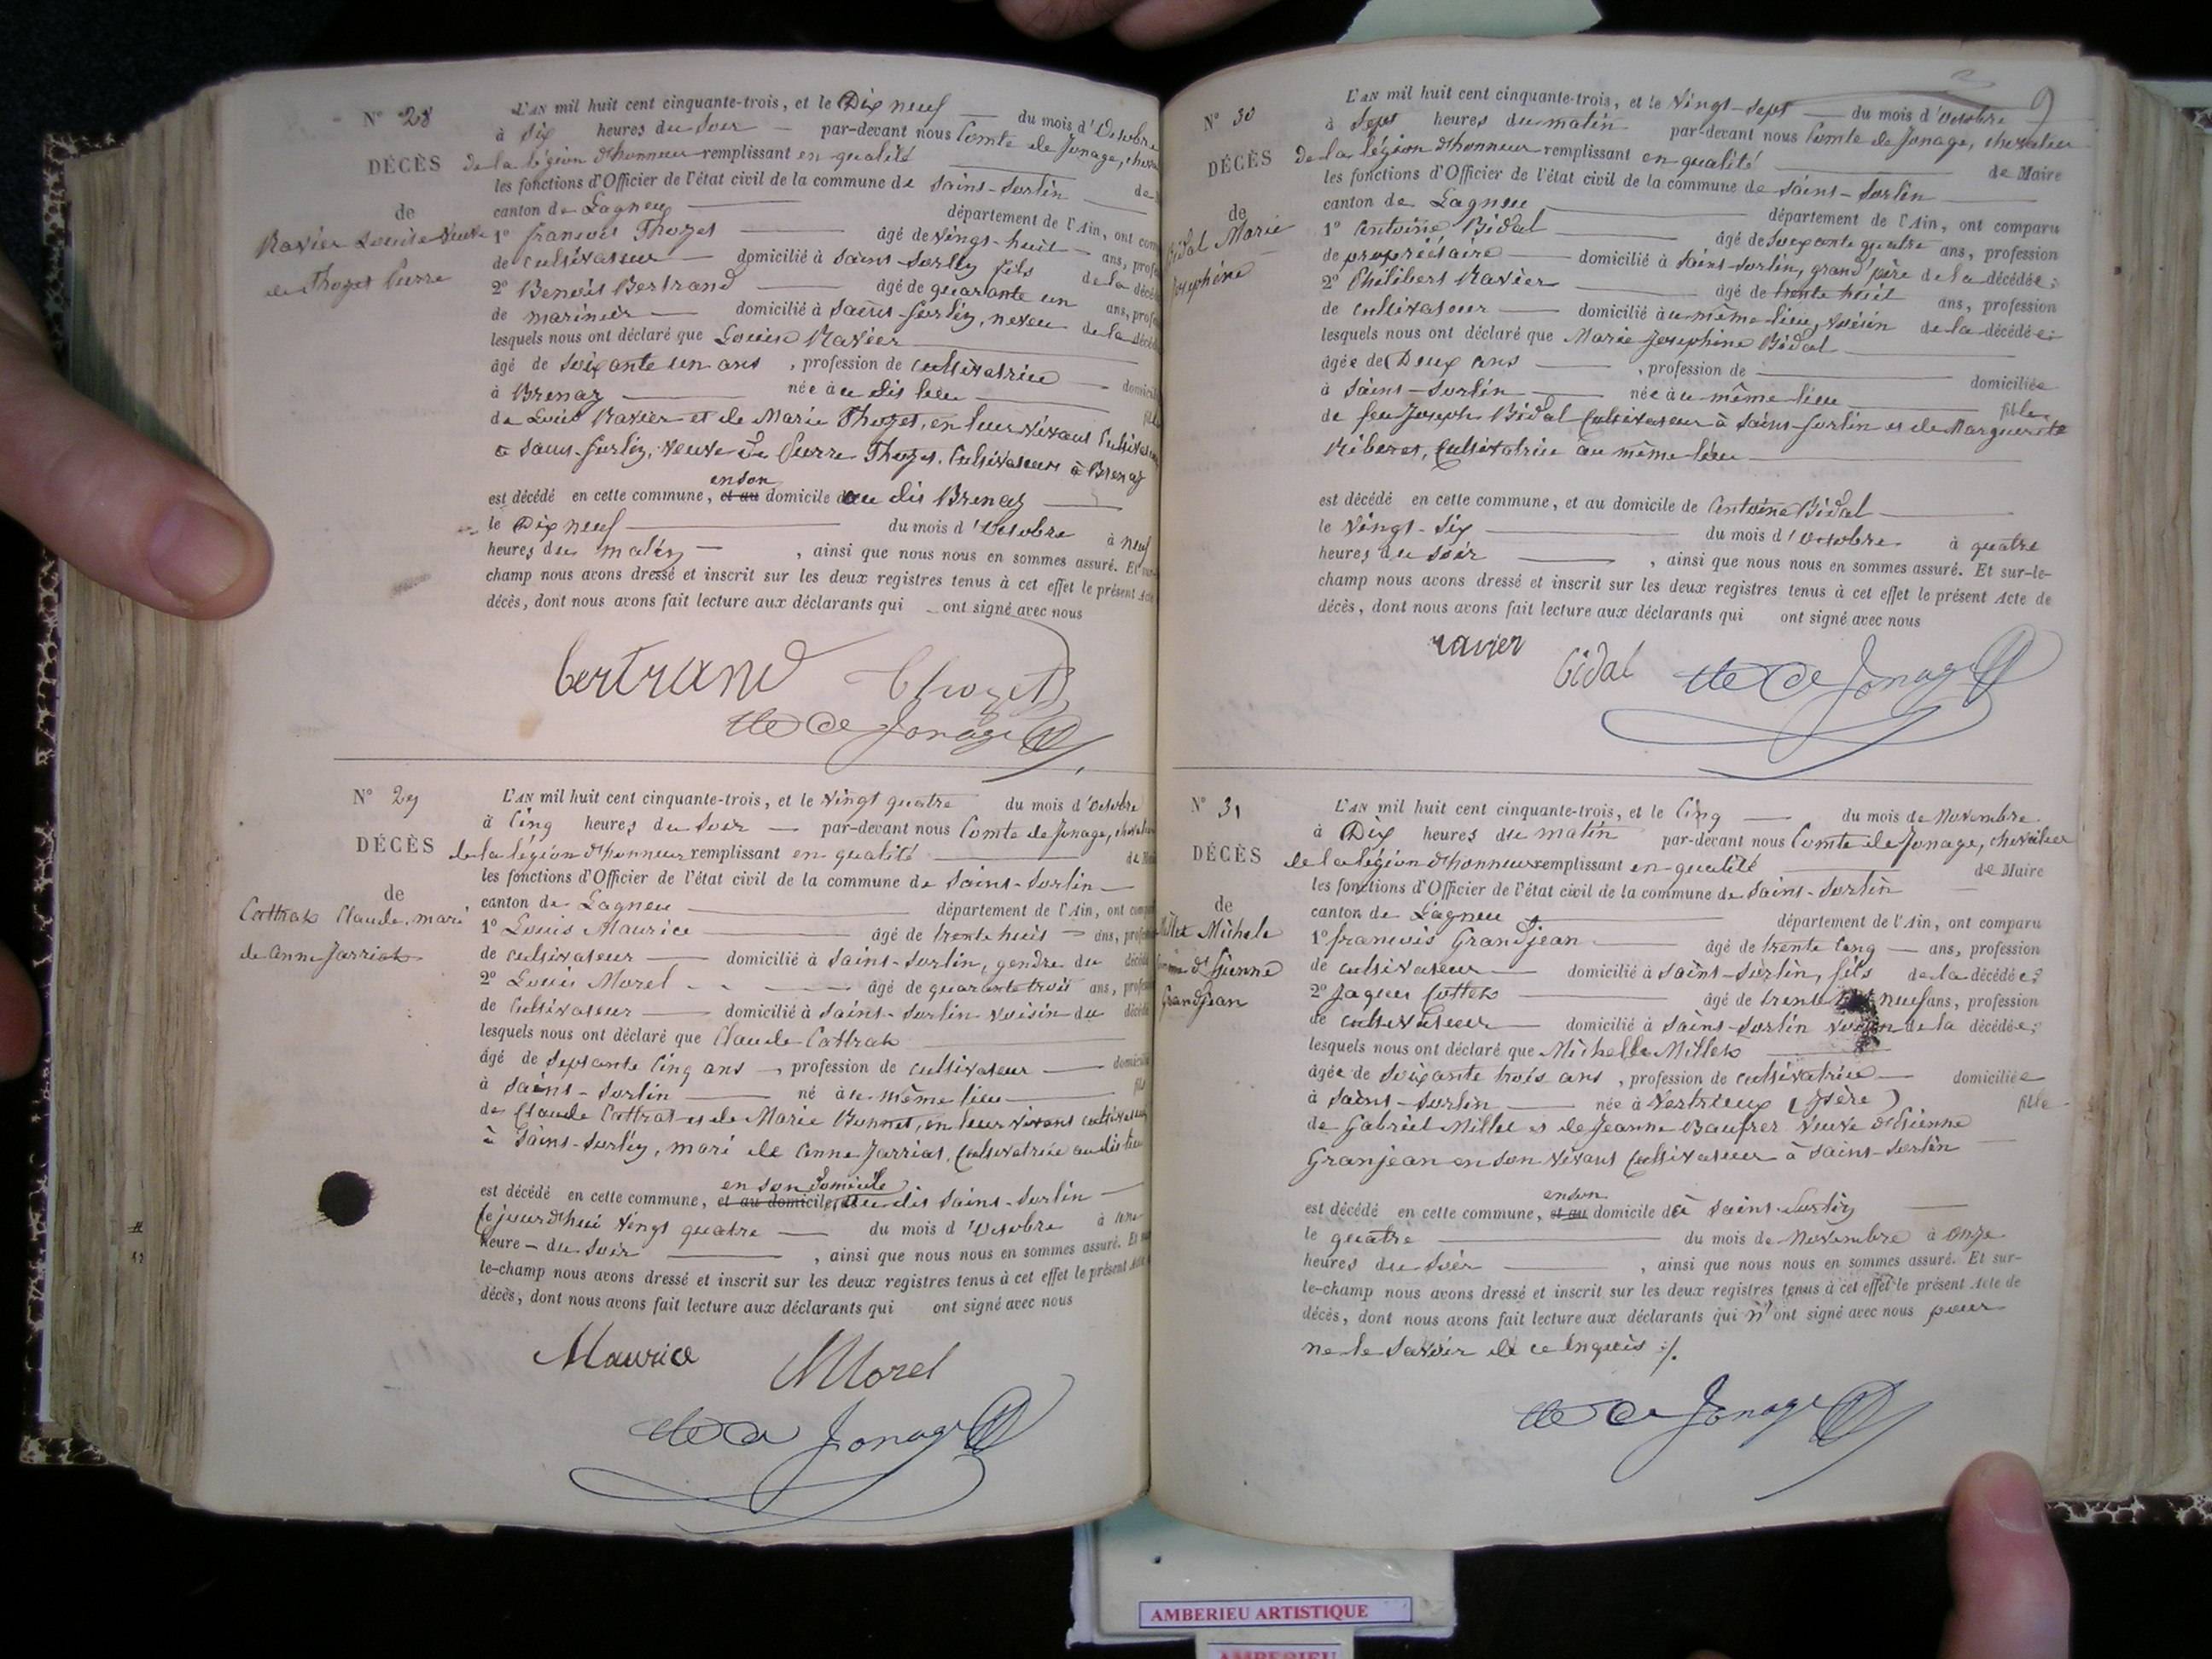 N° 28
DÉCÈS
de
Ravier Louise Veuve
de Thozet Pierre
L'AN mil huit cent cinquante-trois, et le Dix neuf du mois d'Octobre
à Six heures du Soir par-devant nous Comte de Jonage,
de la légion d'honneur remplissant en qualité
les fonctions d'Officier de l'état civil de la commune de Saint-Sorlin
canton de Lagneu département de l'Ain, ont
1° françois Thozet âgé de vingt-huit ans,
de cultivateur domicilié à Saint-Sorlin fils de la
2° Benoit Bertrand âgé de quarante un ans,
de marinier domicilié à Saint-Sorlin, neveu de la
lesquels nous ont déclaré que Louise Ravier
âgé de soixante un ans, profession de cultivatrice
à Brenaz née au dit lieu
de Louis Ravier et de Marie Thozet, en leur vivant
à Saint-Sorlin, veuve de Pierre Thozet, Cultivateur à Brenaz
en son
est décédé en cette commune, et au domicile dau dit Brenaz
le Dix neuf du mois d'Octobre à neuf
heures du matin, ainsi que nous nous en sommes assuré. Et
champ nous avons dressé et inscrit sur les deux registres tenus à cet effet le présent Acte
décès, dont nous avons fait lecture aux déclarants qui ont signé avec nous
bertrand Thozet
cte de Jonage
N° 29
DÉCÈS
de
Cottrat Claude, mari
de anne Jarriat
L'AN mil huit cent cinquante-trois, et le vingt quatre du mois d'Octobre
à Cinq heures du Soir par-devant nous Comte de Jonage,
de la légion d'honneur remplissant en qualité
les fonctions d'Officier de l'état civil de la commune de Saint-Sorlin
canton de Lagneu département de l'Ain, ont
1° Louis Maurice âgé de trente huit ans,
de cultivateur domicilié à Saint-Sorlin, gendre du
2° Louis Morel âgé de quarante trois ans,
de Cultivateur domicilié à Saint-Sorlin voisin du
lesquels nous ont déclaré que Claude Cottrat
âgé de septante cinq ans, profession de cultivateur
à Saint-Sorlin né au même lieu fils
de Claude Cottrat et de Marie Bonnet, en leur vivant
à Saint-Sorlin, mari de Anne Jarriat, Cultivatrice au dit lieu
en son domicile
est décédé en cette commune, et au domicile, au dit Saint-Sorlin
Cejourd'hui vingt quatre du mois d'Octobre à une
heure du Soir, ainsi que nous nous en sommes assuré. Et
le-champ nous avons dressé et inscrit sur les deux registres tenus à cet effet le présent
décès, dont nous avons fait lecture aux déclarants qui ont signé avec nous
Maurice Morel
cte de Jonage
9
N° 30
DÉCÈS
de
Bidal Marie
Josephine
L'AN mil huit cent cinquante-trois, et le vingt-Sept du mois d'Octobre
à Sept heures du matin par-devant nous Comte de Jonage, chevalier
de la légion d'honneur remplissant en qualité de Maire
les fonctions d'Officier de l'état civil de la commune de Saint-Sorlin
canton de Lagneu département de l'Ain, ont comparu
1° Antoine Bidal âgé de soixante quatre ans, profession
de propriétaire domicilié à Saint-Sorlin, grand'père de la décédée;
2° Philibert Ravier âgé de trente huit ans, profession
de cultivateur domicilié au même lieu, voisin de la décédée
lesquels nous ont déclaré que Marie Josephine Bidal
âgée de Deux ans, profession de domiciliée
à Saint-Sorlin née au même lieu fille
de feu Joseph Bidal Cultivateur à Saint-Sorlin et de Marguerite
Riberet, Cultivatrice au même lieu
est décédé en cette commune, et au domicile de Antoine Bidal
le vingt-Six du mois d'Octobre à quatre
heures du soir, ainsi que nous nous en sommes assuré. Et sur-le-
champ nous avons dressé et inscrit sur les deux registres tenus à cet effet le présent Acte de
décès, dont nous avons fait lecture aux déclarants qui ont signé avec nous
ravier bidal cte de Jonage
N° 31
DÉCÈS
de
Millet Michele
femme d'Etienne
Grandjean
L'AN mil huit cent cinquante-trois, et le Cinq du mois de Novembre
à Dix heures du matin par-devant nous Comte de Jonage, chevalier
de la légion d'honneur remplissant en qualité de Maire
les fonctions d'Officier de l'état civil de la commune de Saint-Sorlin
canton de Lagneu département de l'Ain, ont comparu
1° francois Grandjean âgé de trente cinq ans, profession
de cultivateur domicilié à Saint-Sorlin, fils de la décédée;
2° Jaques Cottet âgé de trente neuf ans, profession
de cultivateur domicilié à Saint-Sorlin voisin de la décédée;
lesquels nous ont déclaré que Michelle Millet
âgée de soixante trois ans, profession de cultivatrice domiciliée
à Saint-Sorlin née à Vertrieux (Isère) fille
de Gabriel Millet et de Jeanne Baufrer veuve d'Etienne
Granjean en son vivant Cultivateur à Saint-Sorlin
en son
est décédé en cette commune, et au domicile dà Saint-Sorlin
le quatre du mois de Novembre à onze
heures du Soir, ainsi que nous nous en sommes assuré. Et sur-
le-champ nous avons dressé et inscrit sur les deux registres tenus à cet effet le présent Acte de
décès, dont nous avons fait lecture aux déclarants qui n'ont signé avec nous pour
ne le savoir de ce enquis ./.
cte de Jonage
AMBERIEU ARTISTIQUE
AMBERIEU